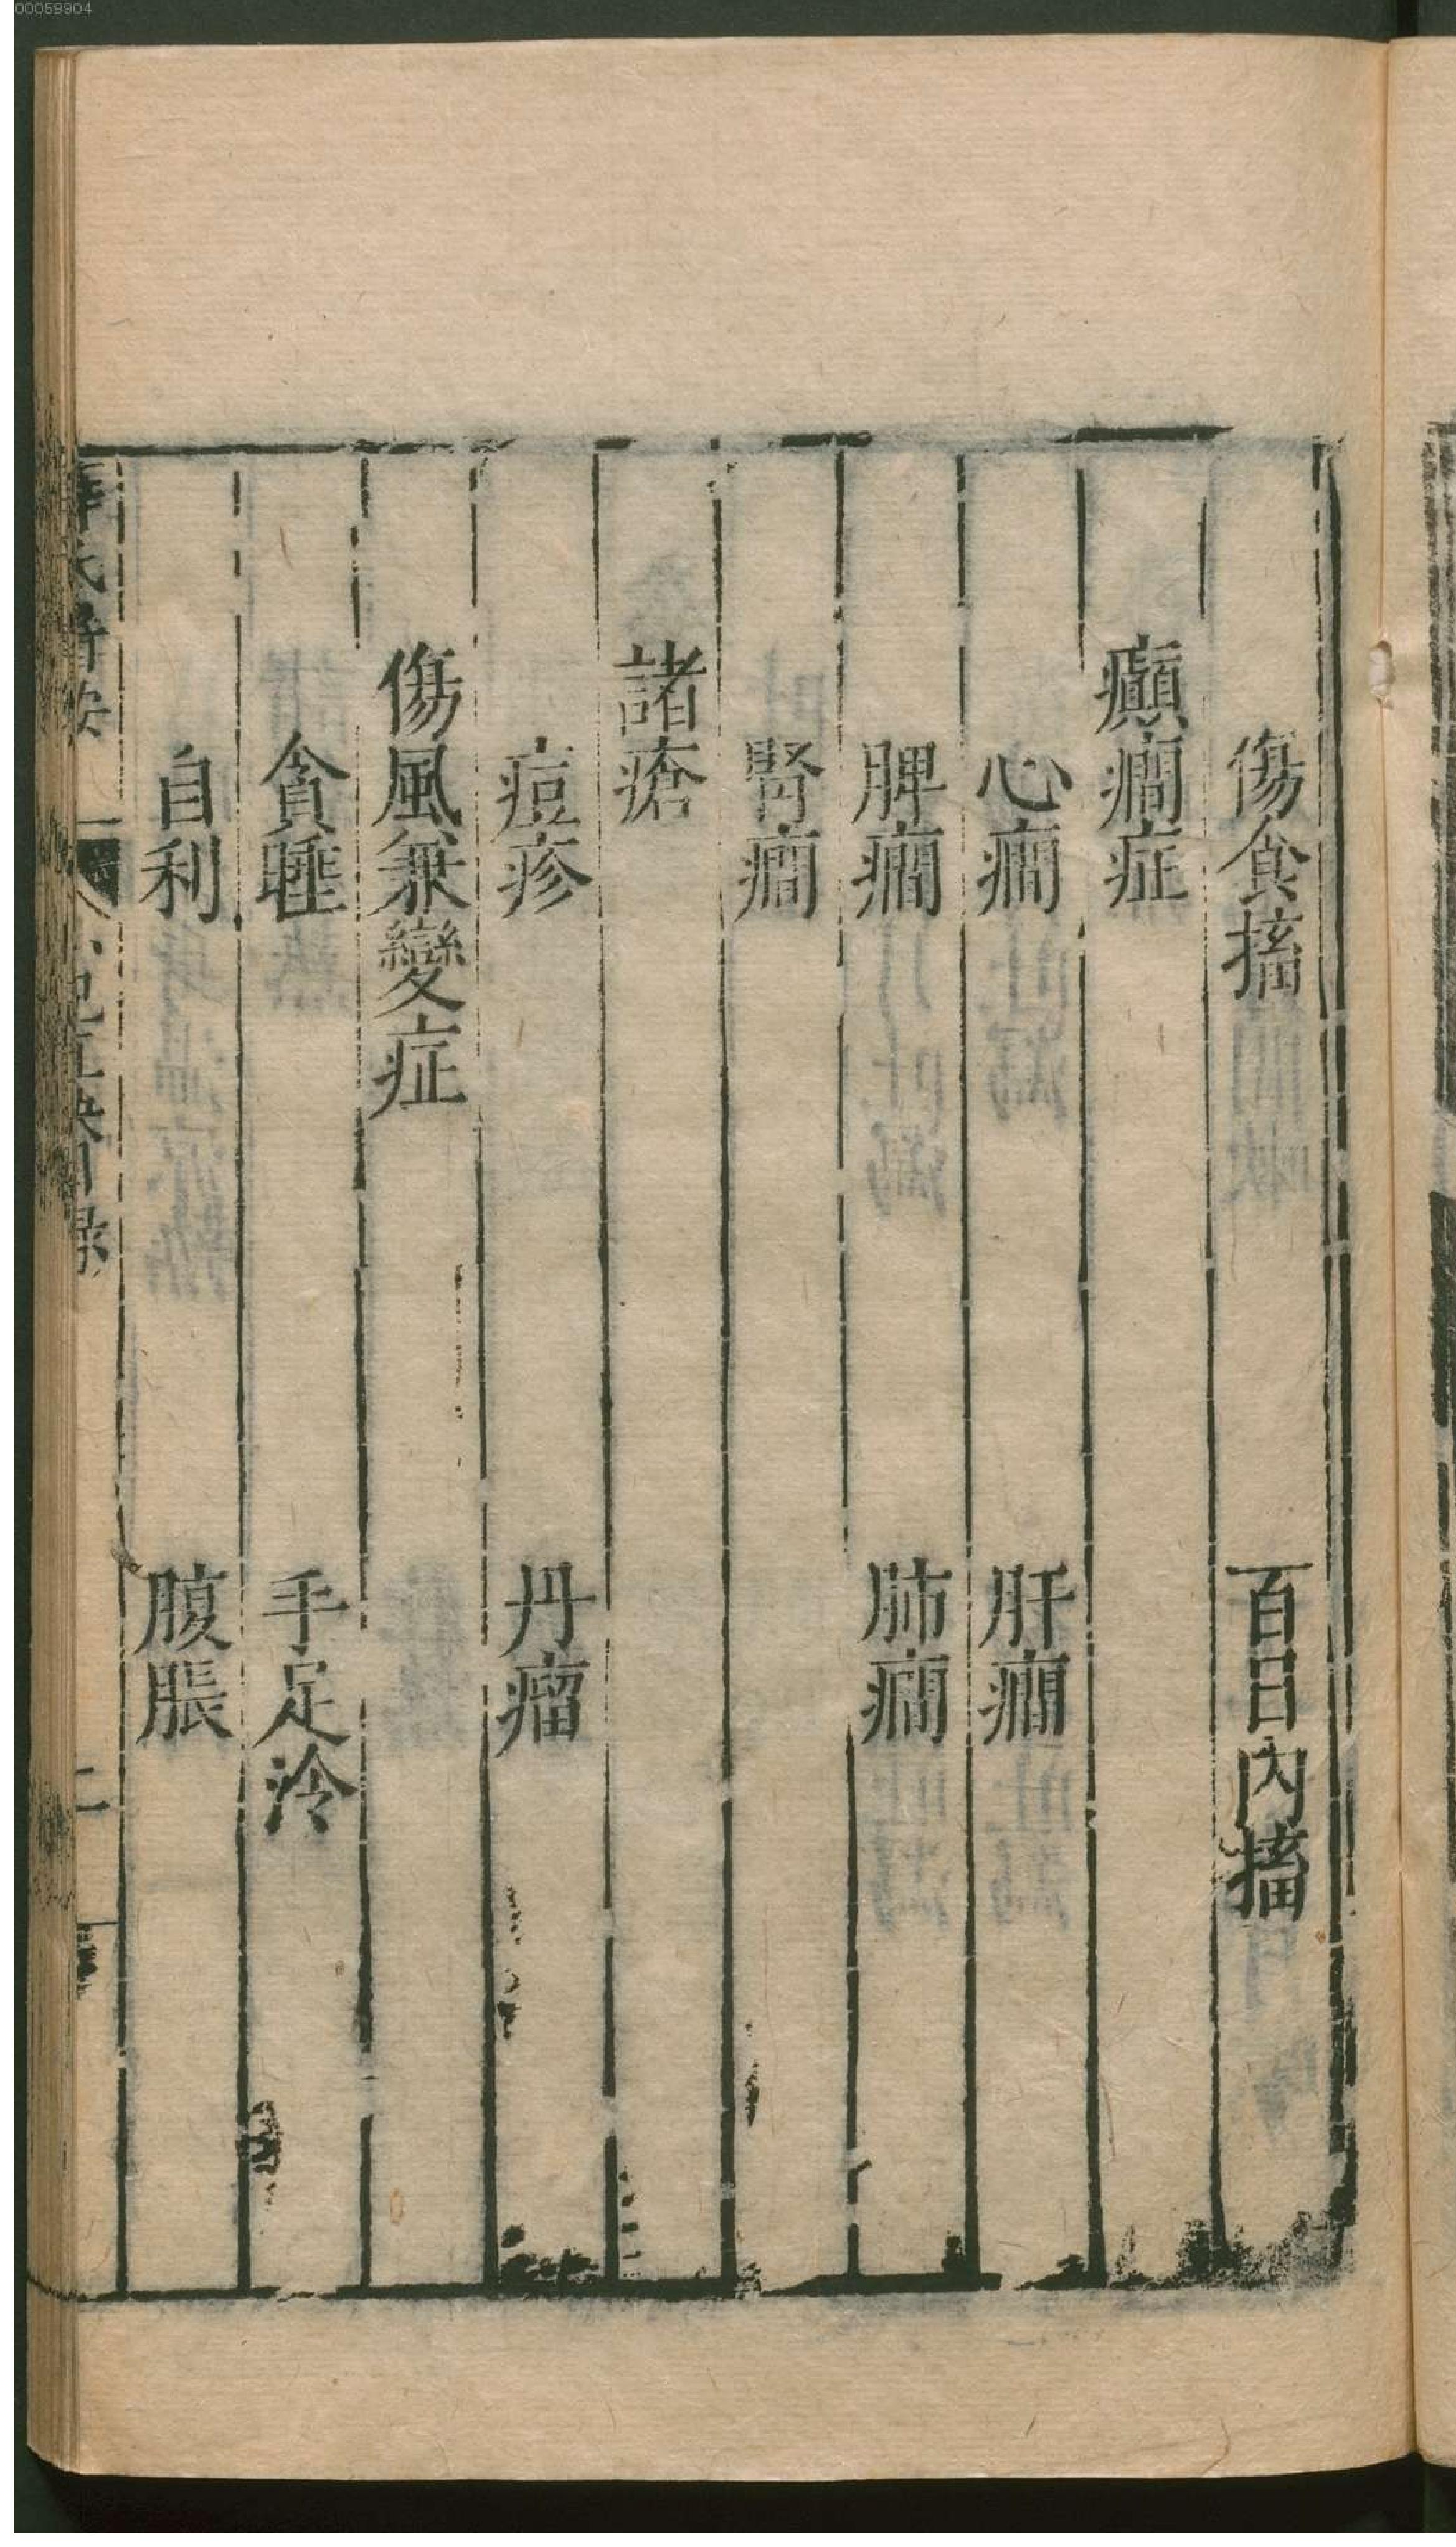 00059904
傷食搐　百日內搐
癲癇症
心癇　肝癇
脾癇　肺癇
腎癇
諸瘡
痘疹　丹瘤
傷風兼變症
貪睡　手足冷
自利　腹脹
二